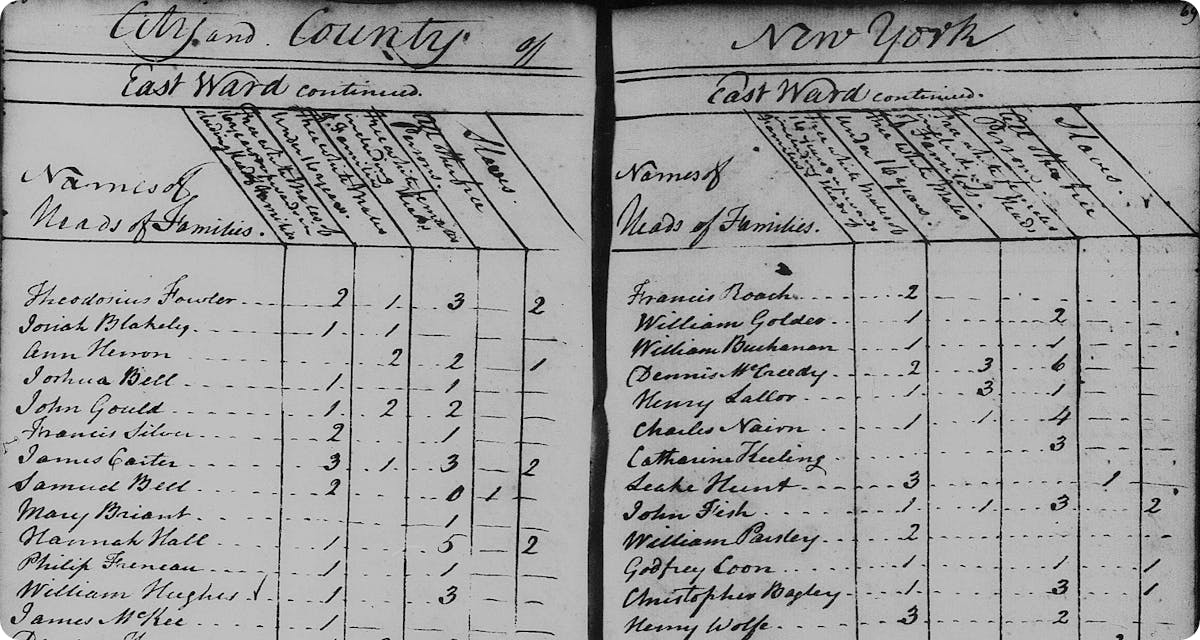 City and County of
East Ward continued.
Names of
Heads of Families.
Free white Males of
16 years & upwards in
cluding Heads of Families
Free white Males
under 16 years.
Free white Females
including
Heads
All other free
Persons.
Slaves.
Theodosius Fowler 2 1 3 2
Josiah Blakely 1 1
Ann Herron 2 2 1
Joshua Bell 1 1
John Gould 1 2 2
Francis Silver 2 1
James Carter 3 1 3 2
Samuel Bell 2 0 1
Mary Briant 1
Hannah Hall 1 5 2
Philip Freneau 1 1
William Hughes 1 3
James McKee 1
New York
East Ward continued.
Names of
Heads of Families.
Free white Males of
under 16 years.
Families.
All other free
Persons.
Slaves.
Francis Roach 2
William Golder 1 2
William Buchanan 1 1
Dennis McCreedy 2 3 6
Henry Lallor 1 3 1
Charles Nairn 1 1 4
Catharine Keeling 3
Leake Hunt 3 1
John Fish 1 1 3 2
William Paisley 2
Godfrey Coon 1 1 1
Christopher Bagley 1 3 1
Henry Wolfe 3 2